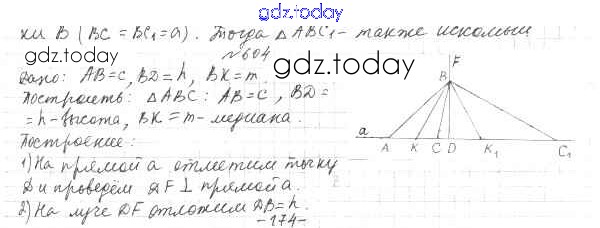 gdz.today
ки B (BC = BC₁ = a). Тогда △ABC₁ - также искомый
№604
gdz.today
gdz.today
Дано: AB=c, BD=h, BK=m.
Построить: △ABC: AB=c, BD=
=h-высота, BK=m-медиана.
Построение:
1) На прямой a отметим точку
D и проведём DF⊥ прямой a.
2) На луче DF отложим DB=h.
F
B
a
A K C D K₁ C₁
-174-